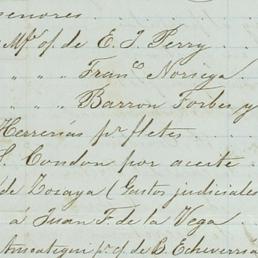 enores
" Mfo of de E. J. Perry
" " " Franco Noriega
" " " Barron Forbes, y
Herrerias pr fletes
S. Condon por aceite
de Zozaya (Gastos judiciales
á Juan F. de la Vega
pr of de B. Echeverri